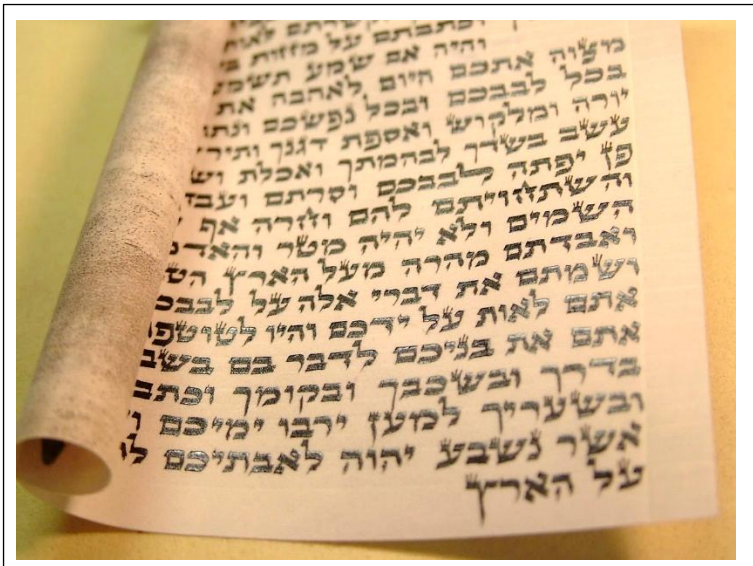 לאות
וכתבתם על מזזות
והיה אם שמע
מצוה אתכם היום לאהבה את
בכל לבבכם ובכל נפשכם
יורה ומלקוש ואספת דגנך
עשב בשדך לבהמתך ואכלת
פן יפתה לבבכם וסרתם
והשתחויתם להם וחרה אף
השמים ולא יהיה מטר
ואבדתם מהרה מעל הארץ
ושמתם את דברי אלה על
אתם לאות על ידכם והיו
אתם את בניכם לדבר בם
בדרך ובשכבך ובקומך
ובשעריך למען ירבו ימיכם
אשר נשבע יהוה לאבתיכם
על הארץ